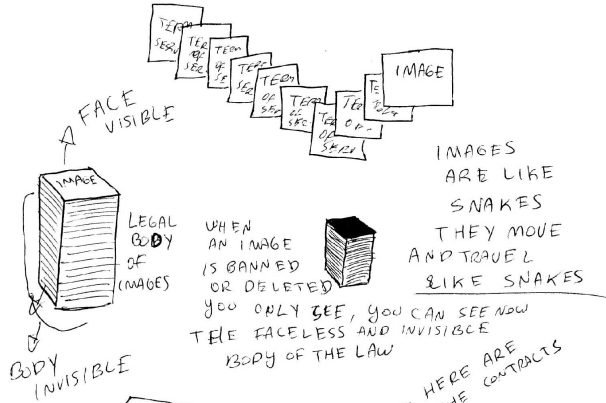 TERM
OF
SERV
TERM
OF
SERV
TERM
OF
SE
TERM
OF
SERV
TERM
OF
SE
TERM
OF
SERV
TERM
OF
SERV
TERM
OF
IMAGE
FACE
VISIBLE
IMAGE
LEGAL
BODY
OF
IMAGES
BODY
INVISIBLE
WHEN
AN IMAGE
IS BANNED
OR DELETED
YOU ONLY SEE, YOU CAN SEE NOW
THE FACELESS AND INVISIBLE
BODY OF THE LAW
IMAGES
ARE LIKE
SNAKES
THEY MOVE
AND TRAVEL
LIKE SNAKES
HERE ARE
CONTRACTS